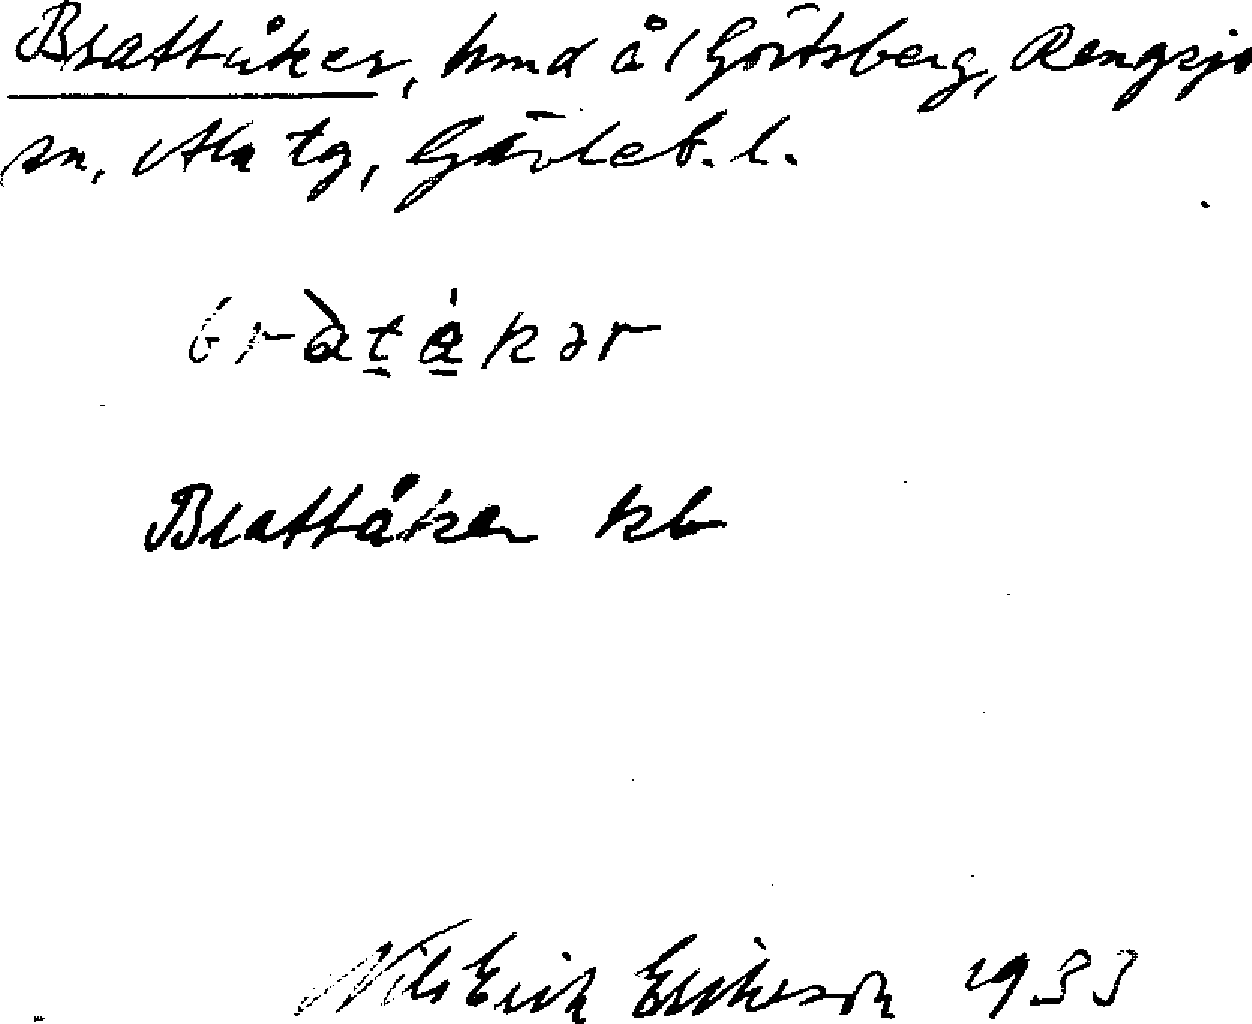 Brattåker, hmd å 1 Görtsberg, Rengsjö
sn, Ala tg, Gävleb. l.
bràtákər
Brattåker kb
Nils Erik Eriksson 1933